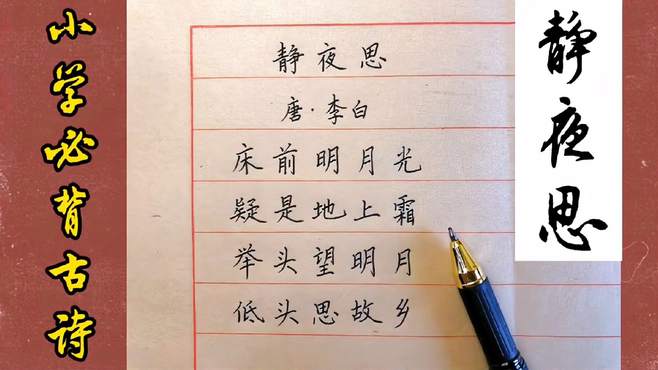 小学必背古诗
静夜思
唐·李白
床前明月光
疑是地上霜
举头望明月
低头思故乡
静夜思